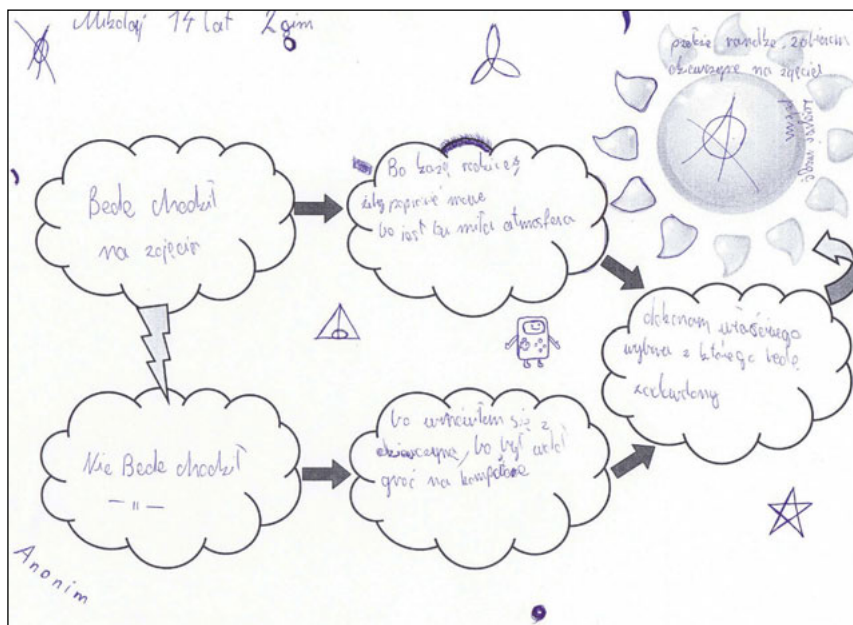 Mikołaj 14 lat 2 gim
przełożę randkę, zabiorę
dziewczynę na zajęcia
Bede chodził
na zajęcia
Bo każą rodzice,
żeby poprawić mowe
bo jest tu miła atmosfera
dokonam właściwego
wyboru z którego będę
zadowolony
Nie Bede chodził
— " —
bo umówiłem się z
dziewczyną, bo
grać na komputerze
Anonim